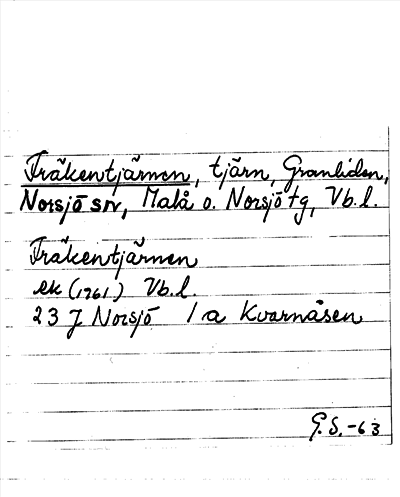 Fräkentjärnen, tjärn, Granliden,
Norsjö sn, Malå o. Norsjö tg, Vb.l.
Fräkentjärnen
ek (1961) Vb.l.
23 J Norsjö 1a Kvarnåsen
G.S.-63